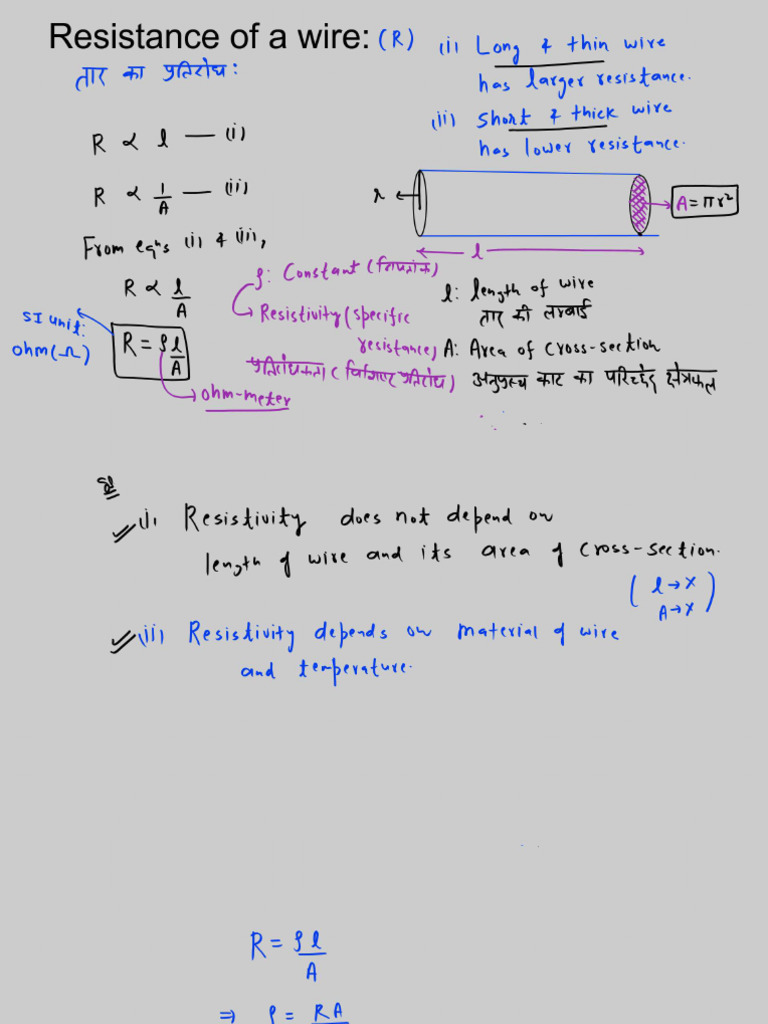 Resistance of a wire: (R)
तार का प्रतिरोध :
(i) Long & thin wire
has larger resistance.
(ii) Short & thick wire
has lower resistance.
R ∝ l — (i)
R ∝ 1/A — (ii)
From eqⁿs (i) & (ii),
R ∝ l/A
R = ρl/A
SI unit:
ohm (Ω)
ohm-meter
ρ: Constant (नियतांक)
Resistivity (specific
resistance)
प्रतिरोधकता (विशिष्ट प्रतिरोध)
r
A = πr²
l
l: length of wire
तार की लम्बाई
A: Area of cross-section
अनुप्रस्थ काट का परिच्छेद क्षेत्रफल
(i). Resistivity does not depend on
length of wire and its area of cross-section.
(l → x
A → x)
(ii) Resistivity depends on material of wire
and temperature.
R = ρl/A
⇒ ρ = RA